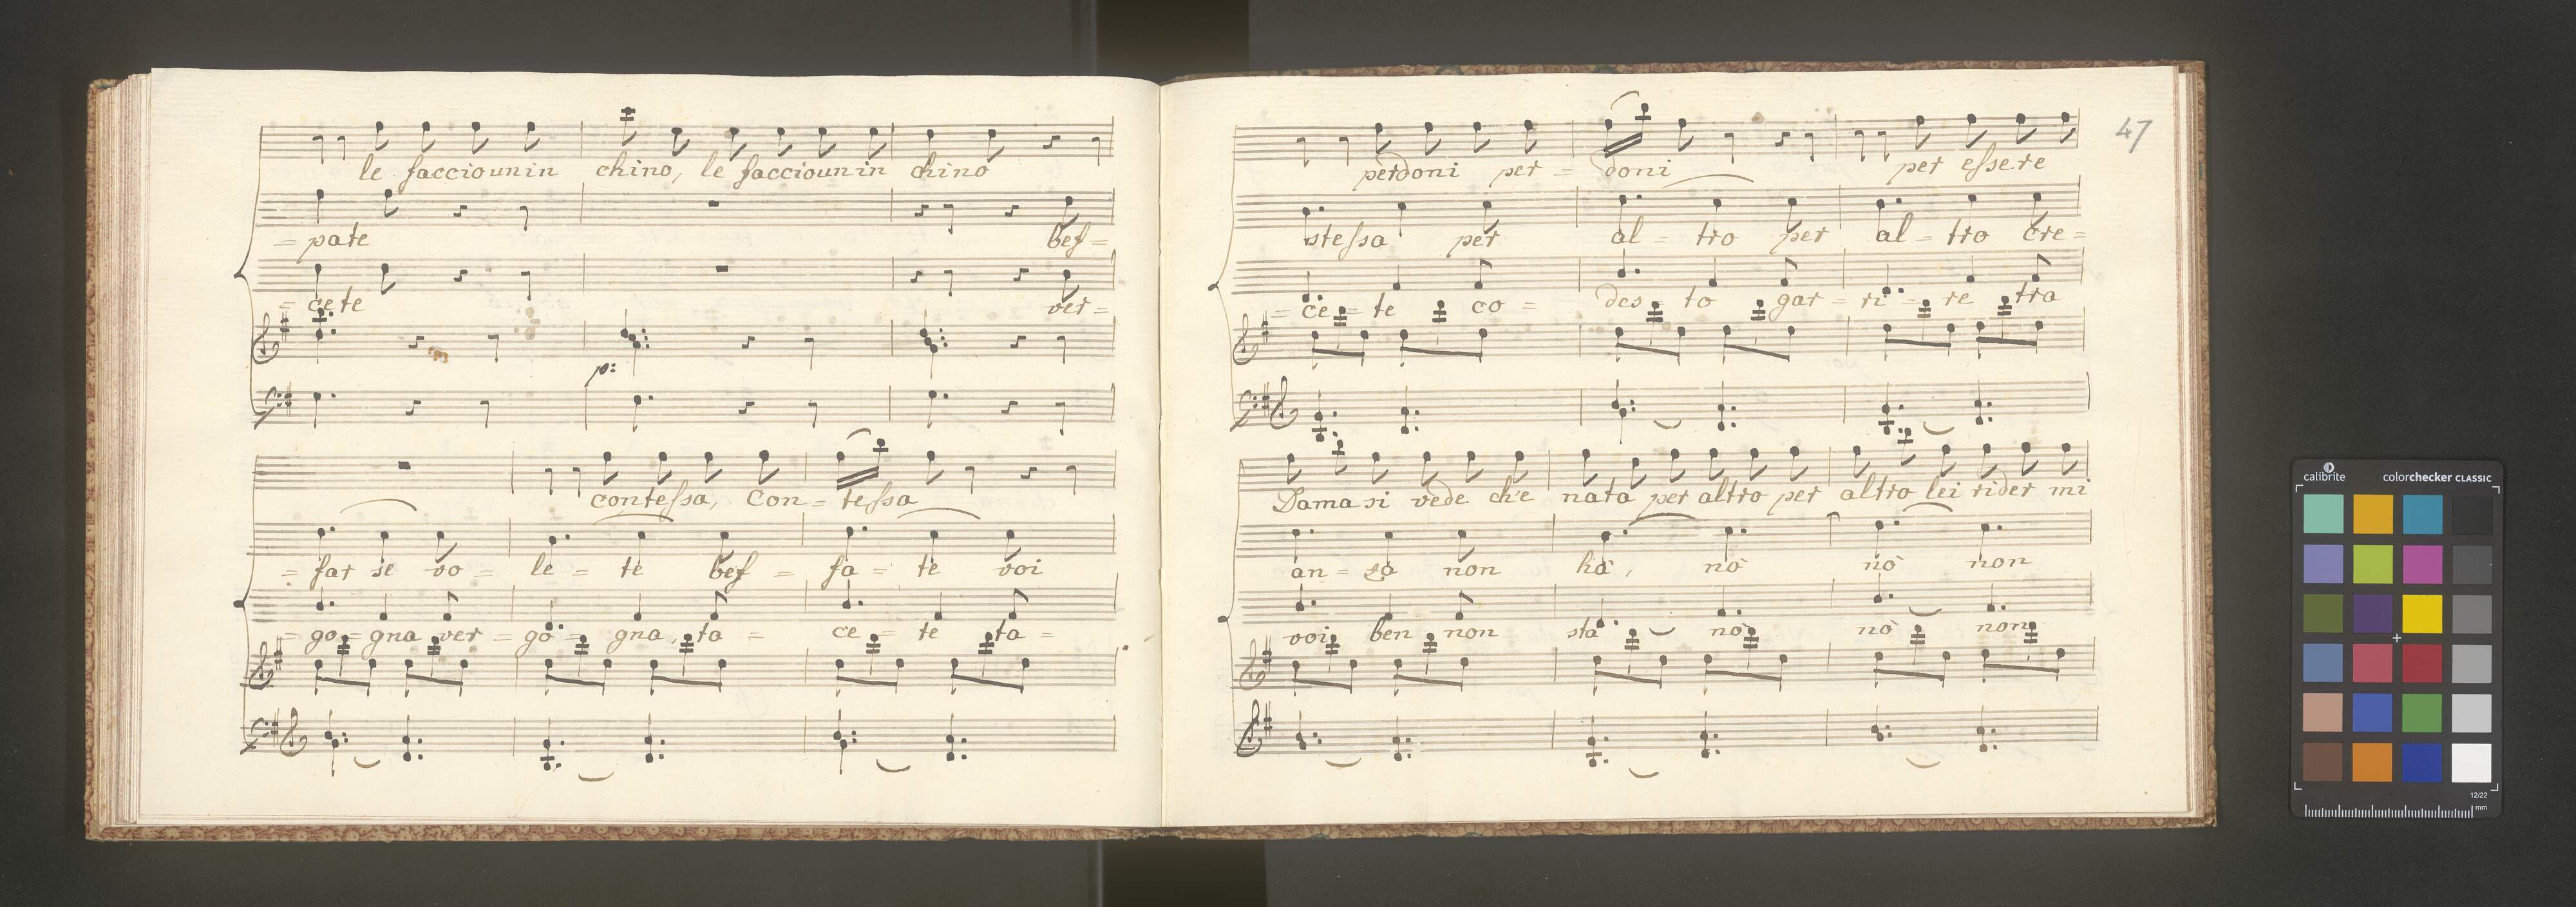 le faccio un in chino, le faccio un in chino
= pate bef=
= cete ver=
p:
contefsa, Con = tefsa
= far se vo = le = te bef = fa = te voi
= go = gna ver = go = gna, ta = ce = te ta =
47
perdoni per = doni per efsere
stefsa per al = tro per al = tro cre=
= ce = te co = des to gar = ri = re tra
Dama si vede che nata per altro per altro lei rider mi
an = za non hà, nò nò non
voi ben non sta nò nò non
calibrite colorchecker CLASSIC
12/22
mm